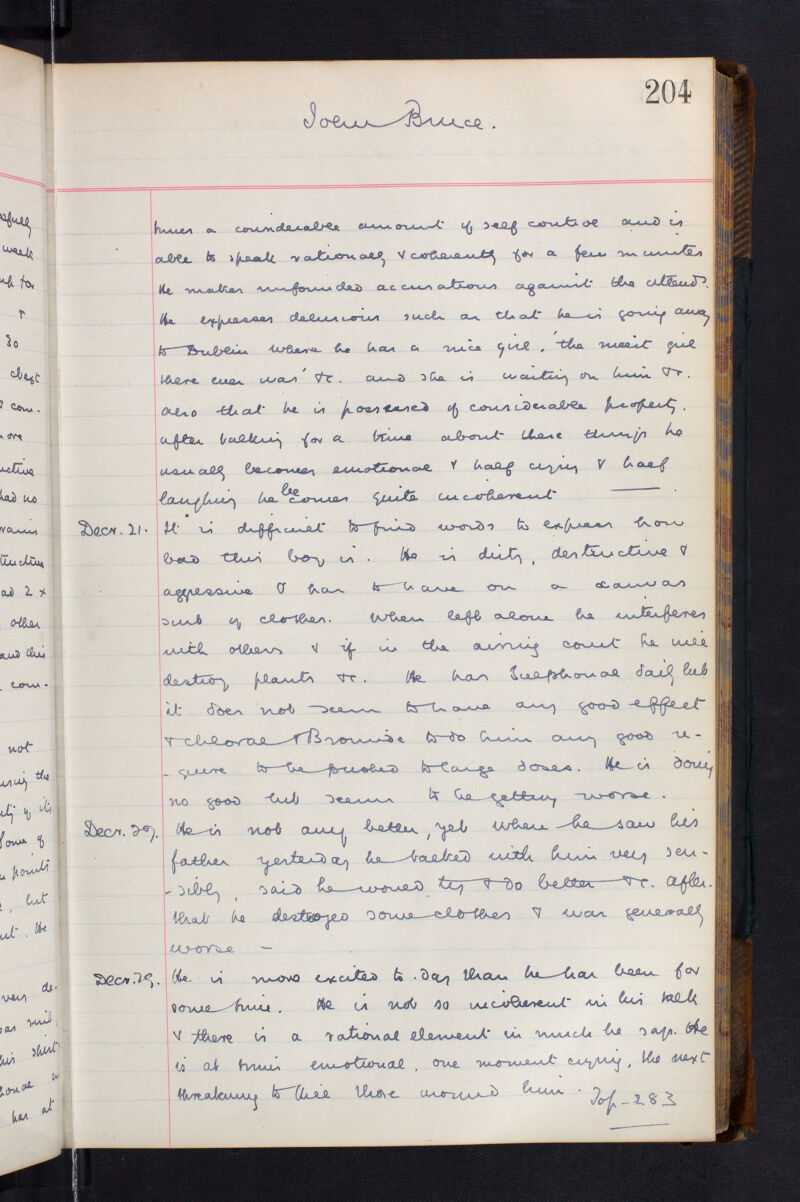 204
John Bruce.
times a considerable amount of self control and is
able to speak rationally & coherently for a few minutes
He makes unfounded accusations against the attends.
He expresses delusions such as that he is going away
to Dublin where he has a nice girl, 'the nicest girl
there ever was' &c. and she is waiting on him &c.
also that he is possessed of considerable property.
after talking for a time about these things he
usually becomes emotional & half crying & half
laughing he becomes quite incoherent —
Decr. 21. It is difficult to find words to express how
bad this boy is. He is dirty, destructive &
aggressive & has to have on a canvas
suit of clothes. When left alone he interferes
with others & if in the airing court he will
destroy plants &c. He has Sulphonal daily but
it does not seem to have any good effect
& chloral & Bromide to do him any good re-
-quire to be pushed to large doses. He is doing
no good but seems to be getting worse.
Decr. 27. He is not any better, yet when he saw his
father yesterday he talked with him very sen-
-sibly, said he would try & do better &c. after
that he destroyed some clothes & was generally
worse –
Decr. 29. He is more excited to-day than he has been for
some time. He is not so incoherent in his talk
& there is a rational element in much he says. He
is at times emotional, one moment crying, the next
threatening to kill those around him. To p-283